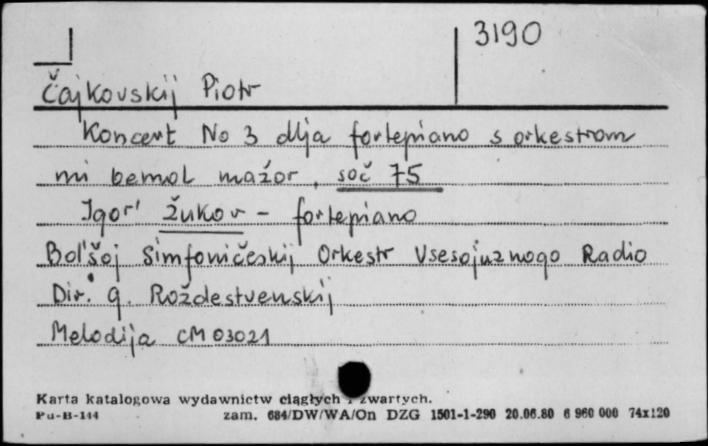 3190
Čajkovskij Piotr
Koncert No 3 dlja fortepiano s orkestrom
mi bemol mažor, soč 75
Igor' Žukov - fortepiano
Bol'šoj Simfoničeskij Orkestr Vsesojuznogo Radio
Dir. g. Roždestvenskij
Melodija CM 03021
Karta katalogowa wydawnictw ciągłych i zwartych.
Pu-B-144 zam. 684/DW/WA/On DZG 1501-1-290 20.06.80 6 960 000 74x120